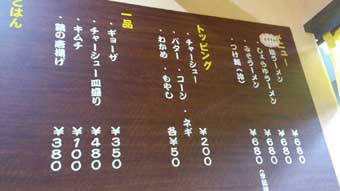 メニュー
塩ラーメン ¥680
しょうゆラーメン ¥680
みそラーメン ¥680
つけ麺 ¥680
トッピング
・チャーシュー ¥200
・バター・コーン・ネギ
・わかめ・もやし 各¥50
一品
・ギョーザ ¥350
・チャーシュー皿盛り ¥480
・キムチ ¥100
・鶏の唐揚げ ¥380
ごはん